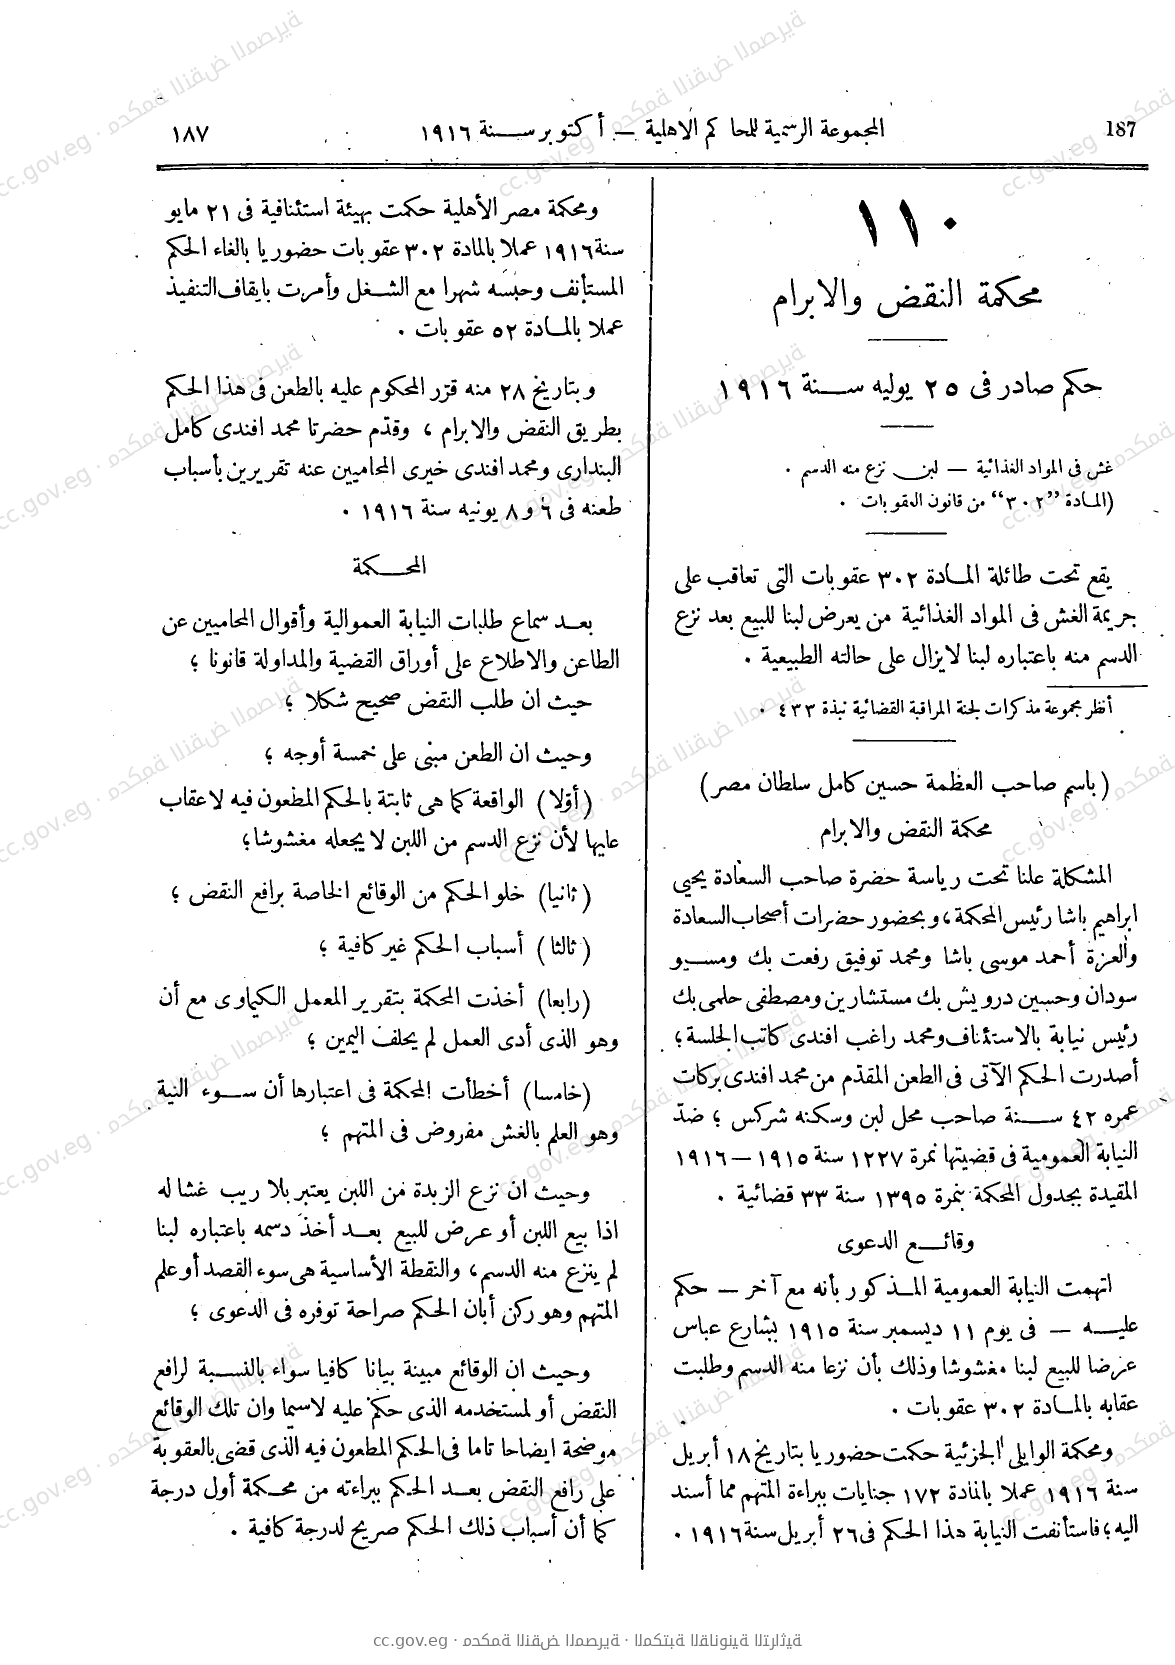 187
المجموعة الرسمية للمحاكم الاهلية — أكتوبر سنة ١٩١٦
١٨٧
١١٠
محكمة النقض والابرام
حكم صادر فى ٢٥ يوليه سنة ١٩١٦
غش فى المواد الغذائية — لبن نزع منه الدسم .
(المادة "٣٠٢" من قانون العقوبات .
يقع تحت طائلة المادة ٣٠٢ عقوبات التى تعاقب على
جريمة الغش فى المواد الغذائية من يعرض لبنا للبيع بعد نزع
الدسم منه باعتباره لبنا لايزال على حالته الطبيعية .
أنظر مجموعة مذكرات لجنة المراقبة القضائية نبذة ٤٣٣ .
(باسم صاحب العظمة حسين كامل سلطان مصر)
محكمة النقض والابرام
المشكلة علنا تحت رياسة حضرة صاحب السعادة يحيى
ابراهيم باشا رئيس المحكمة، وبحضور حضرات أصحاب السعادة
والعزة أحمد موسى باشا ومحمد توفيق رفعت بك ومسيو
سودان وحسين درويش بك مستشارين ومصطفى حلمى بك
رئيس نيابة بالاستئناف ومحمد راغب افندى كاتب الجلسة؛
أصدرت الحكم الآتى فى الطعن المقدّم من محمد افندى بركات
عمره ٤٢ سنة صاحب محل لبن وسكنه شركس ؛ ضدّ
النيابة العمومية فى قضيتها نمرة ١٢٢٧ سنة ١٩١٥ — ١٩١٦
المقيدة بجدول المحكمة بنمرة ١٣٩٥ سنة ٣٣ قضائية .
وقائع الدعوى
اتهمت النيابة العمومية المذكور بأنه مع آخر — حكم
عليه — فى يوم ١١ ديسمبر سنة ١٩١٥ بشارع عباس
عرضا للبيع لبنا مغشوشا وذلك بأن نزعا منه الدسم وطلبت
عقابه بالمادة ٣٠٢ عقوبات .
ومحكمة الوايلى الجزئية حكمت حضوريا بتاريخ ١٨ أبريل
سنة ١٩١٦ عملا بالمادة ١٧٢ جنايات ببراءة المتهم مما أسند
اليه؛ فاستأنفت النيابة هذا الحكم فى ٢٦ أبريل سنة ١٩١٦ .
ومحكمة مصر الأهلية حكمت بهيئة استئنافية فى ٢١ مايو
سنة ١٩١٦ عملا بالمادة ٣٠٢ عقوبات حضوريا بالغاء الحكم
المستأنف وحبسه شهرا مع الشغل وأمرت بايقاف التنفيذ
عملا بالمادة ٥٢ عقوبات .
وبتاريخ ٢٨ منه قرّر المحكوم عليه بالطعن فى هذا الحكم
بطريق النقض والابرام ، وقدّم حضرتا محمد افندى كامل
البندارى ومحمد افندى خيرى المحاميين عنه تقريرين بأسباب
طعنه فى ٦ و ٨ يونيه سنة ١٩١٦ .
المحكمة
بعد سماع طلبات النيابة العموالية وأقوال المحاميين عن
الطاعن والاطلاع على أوراق القضية والمداولة قانونا ؛
حيث ان طلب النقض صحيح شكلا ؛
وحيث ان الطعن مبنى على خمسة أوجه ؛
(أوّلا) الواقعة كما هى ثابتة بالحكم المطعون فيه لا عقاب
عليها لأن نزع الدسم من اللبن لا يجعله مغشوشا؛
(ثانيا) خلو الحكم من الوقائع الخاصة برافع النقض ؛
(ثالثا) أسباب الحكم غير كافية ؛
(رابعا) أخذت المحكمة بتقرير المعمل الكيماوى مع أن
وهو الذى أدى العمل لم يحلف اليمين ؛
(خامسا) أخطأت المحكمة فى اعتبارها أن سوء النية
وهو العلم بالغش مفروض فى المتهم ؛
وحيث ان نزع الزبدة من اللبن يعتبر بلا ريب غشا له
اذا بيع اللبن أو عرض للبيع بعد أخذ دسمه باعتباره لبنا
لم ينزع منه الدسم، والنقطة الأساسية هى سوء القصد أو علم
المتهم وهو ركن أبان الحكم صراحة توفره فى الدعوى ؛
وحيث ان الوقائع مبينة بيانا كافيا سواء بالنسبة لرافع
النقض أو لمستخدمه الذى حكم عليه لاسيما وان تلك الوقائع
موضحة ايضاحا تاما فى الحكم المطعون فيه الذى قضى بالعقوبة
على رافع النقض بعد الحكم ببراءته من محكمة أول درجة
كما أن أسباب ذلك الحكم صريح لدرجة كافية .
cc.gov.eg · محكمة النقض المصرية · المكتبة القانونية التراثية